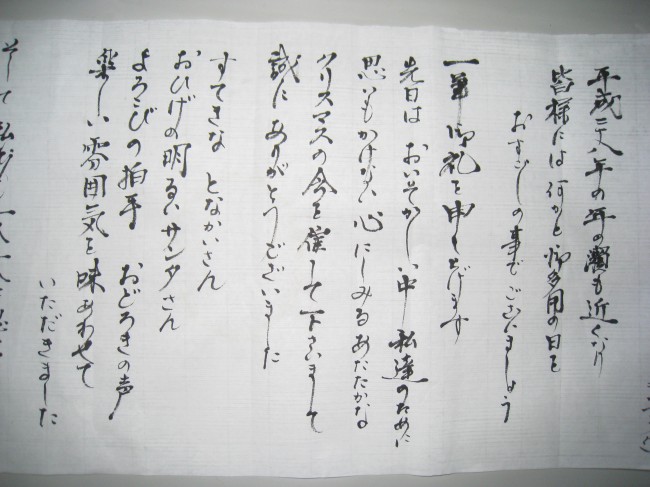 平成二十八年の年の瀬も近くなり
皆様には何かと御多用の日を
おすごしの事でございましょう
一筆御礼を申し上げます
先日は おいそがしい中 私達のために
思いもかけない心にしみるあたたかな
クリスマスの会を催して下さいまして
誠にありがとうございました
すてきな となかいさん
おひげの明るいサンタさん
よろこびの拍手 おどろきの声
楽しい雰囲気を味あわせて
いただきました
そして私達